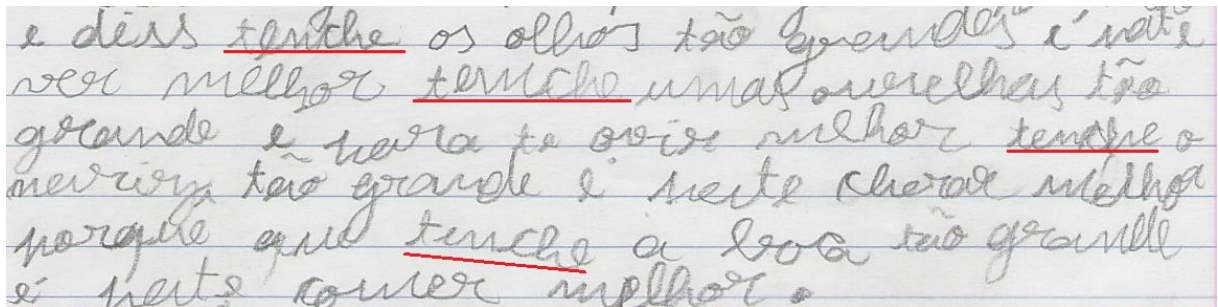 e diss tenche os olhos tão grandes é
ver melhor tenche umas ourelhas tão
grande e para te ovir melhor tenche o
tão grande é melhor
porque que tenche a boca tão grande
é comer melhor.